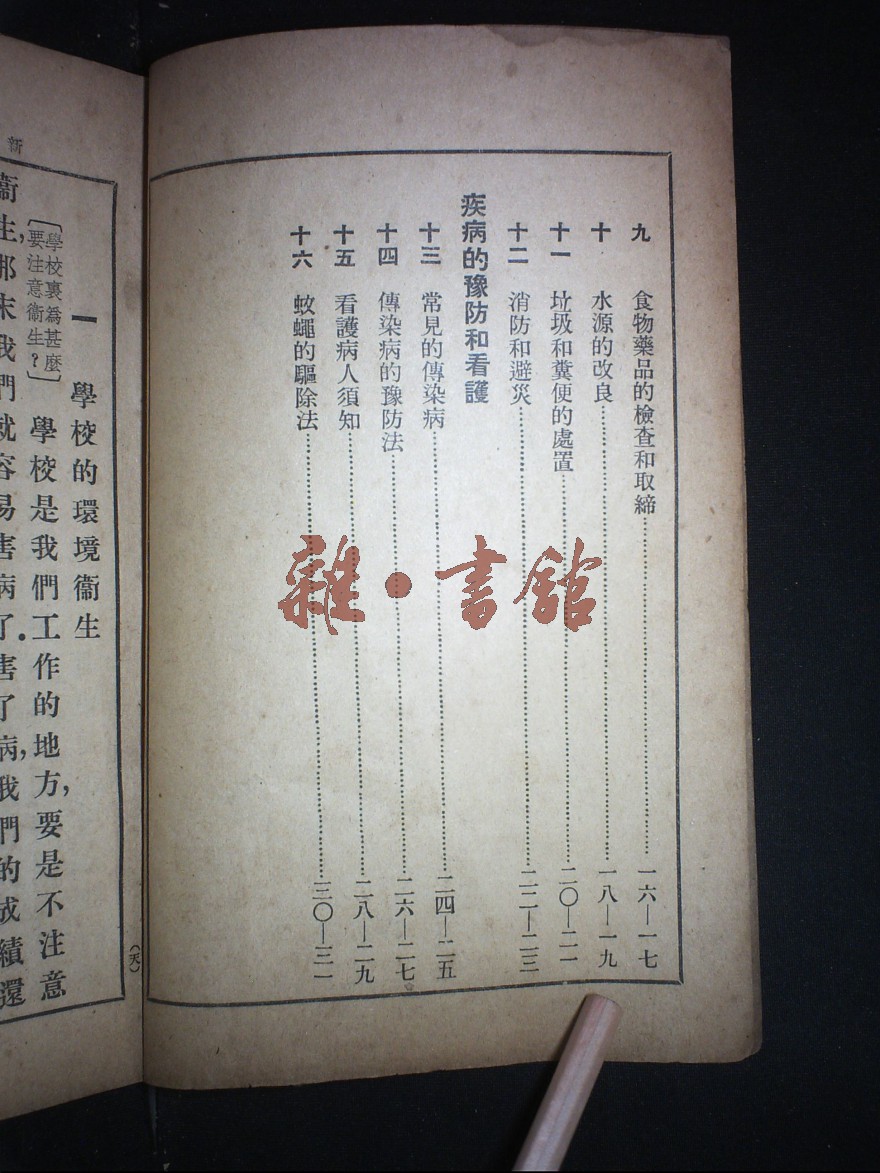 九 食物藥品的檢查和取締 一六—一七
十 水源的改良 一八—一九
十一 垃圾和糞便的處置 二〇—二一
十二 消防和避災 二二—二三
疾病的豫防和看護
十三 常見的傳染病 二四—二五
十四 傳染病的豫防法 二六—二七
十五 看護病人須知 二八—二九
十六 蚊蠅的驅除法 三〇—三一
雜·書館
一 學校的環境衞生
〔學校裏爲甚麼
要注意衞生?〕
學校是我們工作的地方,要是不注意
衞生,那末我們就容易害病了.害了病,我們的成績還
新
(天)